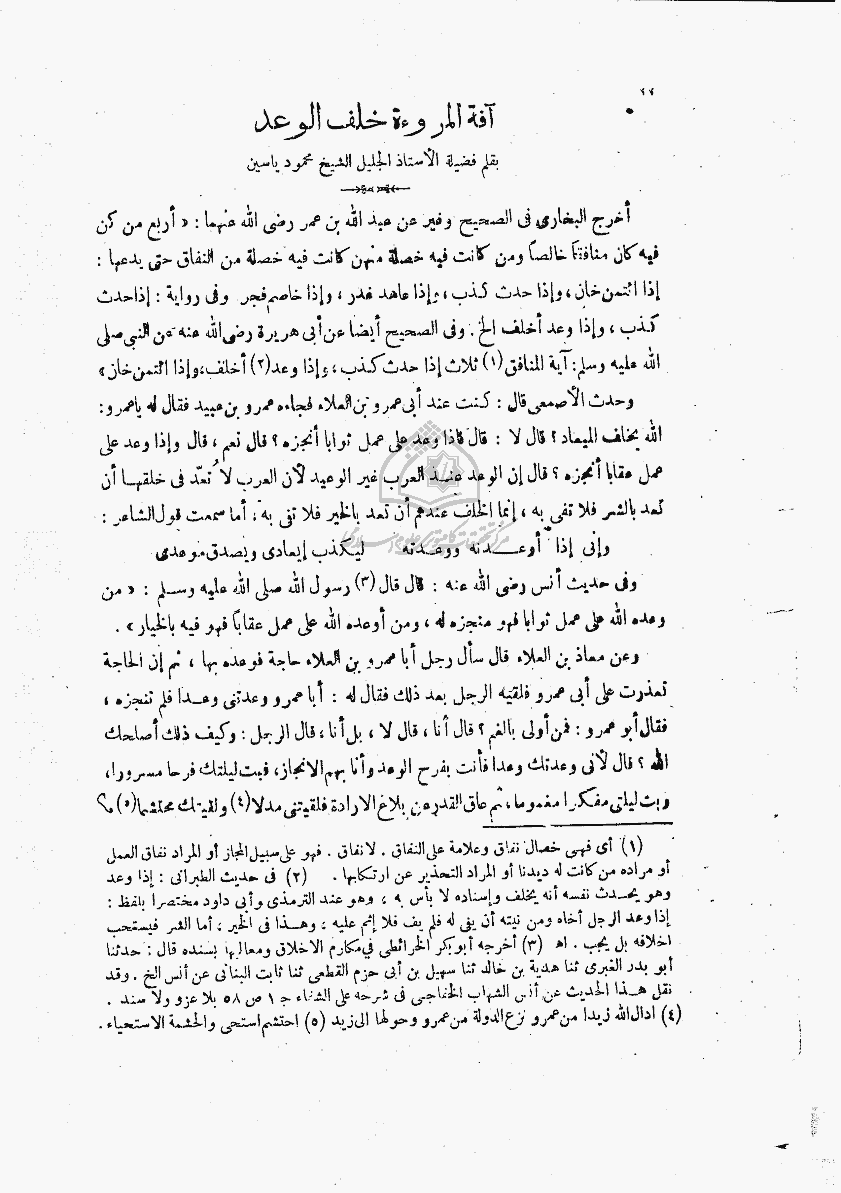 ٢٢
آفة المروءة خلف الوعد
بقلم فضيلة الأستاذ الجليل الشيخ محمود ياسين
أخرج البخارى فى الصحيح وغير عن عبد الله بن عمر رضى الله عنهما : « أربع من كن
فيه كان منافقا خالصا ومن كانت فيه خصلة منهن كانت فيه خصلة من النفاق حتى يدعها :
إذا ائتمن خان ، وإذا حدث كذب ، وإذا عاهد غدر ، وإذا خاصم فجر وفى رواية : إذا حدث
كذب ، وإذا وعد أخلف الخ . وفى الصحيح أيضا عن أبى هريرة رضى الله عنه عن النبى صلى
الله عليه وسلم: آية المنافق (١) ثلاث إذا حدث كذب ، وإذا وعد (٢) أخلف ، وإذا ائتمن خان »
وحدث الأصمعى قال : كنت عند أبى عمرو بن العلاء فجاءه عمرو بن عبيد فقال له يا عمرو :
الله يخلف الميعاد ؟ قال لا : قال فاذا وعد على عمل ثوابا أنجزه ؟ قال نعم ، قال وإذا وعد على
عمل عقابا أنجزه ؟ قال إن الوعد عند العرب غير الوعيد لأن العرب لا تعدّ فى خلقها أن
تعد بالشر فلا تفى به ، إنما الخلف عندهم أن تعد بالخير فلا تفى به ، أما سمعت قول الشاعر :
وإنى إذا أوعدته ووعدته ليكذب إيعادى ويصدق موعدى
وفى حديث أنس رضى الله عنه : قال قال (٣) رسول الله صلى الله عليه وسلم : « من
وعده الله على عمل ثوابا فهو منجزه له ، ومن أوعده الله على عمل عقابًا فهو فيه بالخيار » .
وعن معاذ بن العلاء قال سأل رجل أبا عمرو بن العلاء حاجة فوعده بها ، ثم إن الحاجة
تعذرت على أبى عمرو فلقيه الرجل بعد ذلك فقال له : أبا عمرو وعدتنى وعدا فلم تنجزه ،
فقال أبو عمرو : فمن أولى بالغم ؟ قال أنا ، قال لا ، بل أنا ، قال الرجل : وكيف ذلك أصلحك
الله ؟ قال لأنى وعدتك وعدا فأبت بفرح الوعد وأنا بهم الانجاز ، فبت ليلتك فرحا مسرورا ،
وبت ليلتى مفكرا مغموما ، ثم عاق القدر عن بلاغ الارادة فلقيتنى مدلا (٤) ولقيتك محتشما (٥)
(١) أى فهى خصال نفاق وعلامة على النفاق . لا نفاق . فهو على سبيل المجاز أو المراد نفاق العمل
أو مراده من كانت له ديدنا أو المراد التحذير عن ارتكابها . (٢) فى حديث الطبرانى : إذا وعد
وهو يحدث نفسه أنه يخلف وإسناده لا بأس به ، وهو عند الترمذى وأبى داود مختصرا بلفظ :
إذا وعد الرجل أخاه ومن نيته أن يفى له فلم يف فلا إثم عليه ، وهذا فى الخير ، أما الشر فيستحب
اخلافه بل يجب . اه (٣) أخرجه أبو بكر الخرائطى في مكارم الاخلاق ومعاليها بسنده قال : حدثنا
أبو بدر الغبرى ثنا هدبة بن خالد ثنا سهيل بن أبى حزم القطعى ثنا ثابت البنانى عن أنس الخ . وقد
نقل هذا الحديث عن أنس الشهاب الخفاجى فى شرحه على الشفاء ج ١ ص ٥٨ بلا عزو ولا سند .
(٤) ادال الله زيدا من عمرو نزع الدولة من عمرو وحولها الى زيد (٥) احتشم استحى والحشمة الاستحياء .